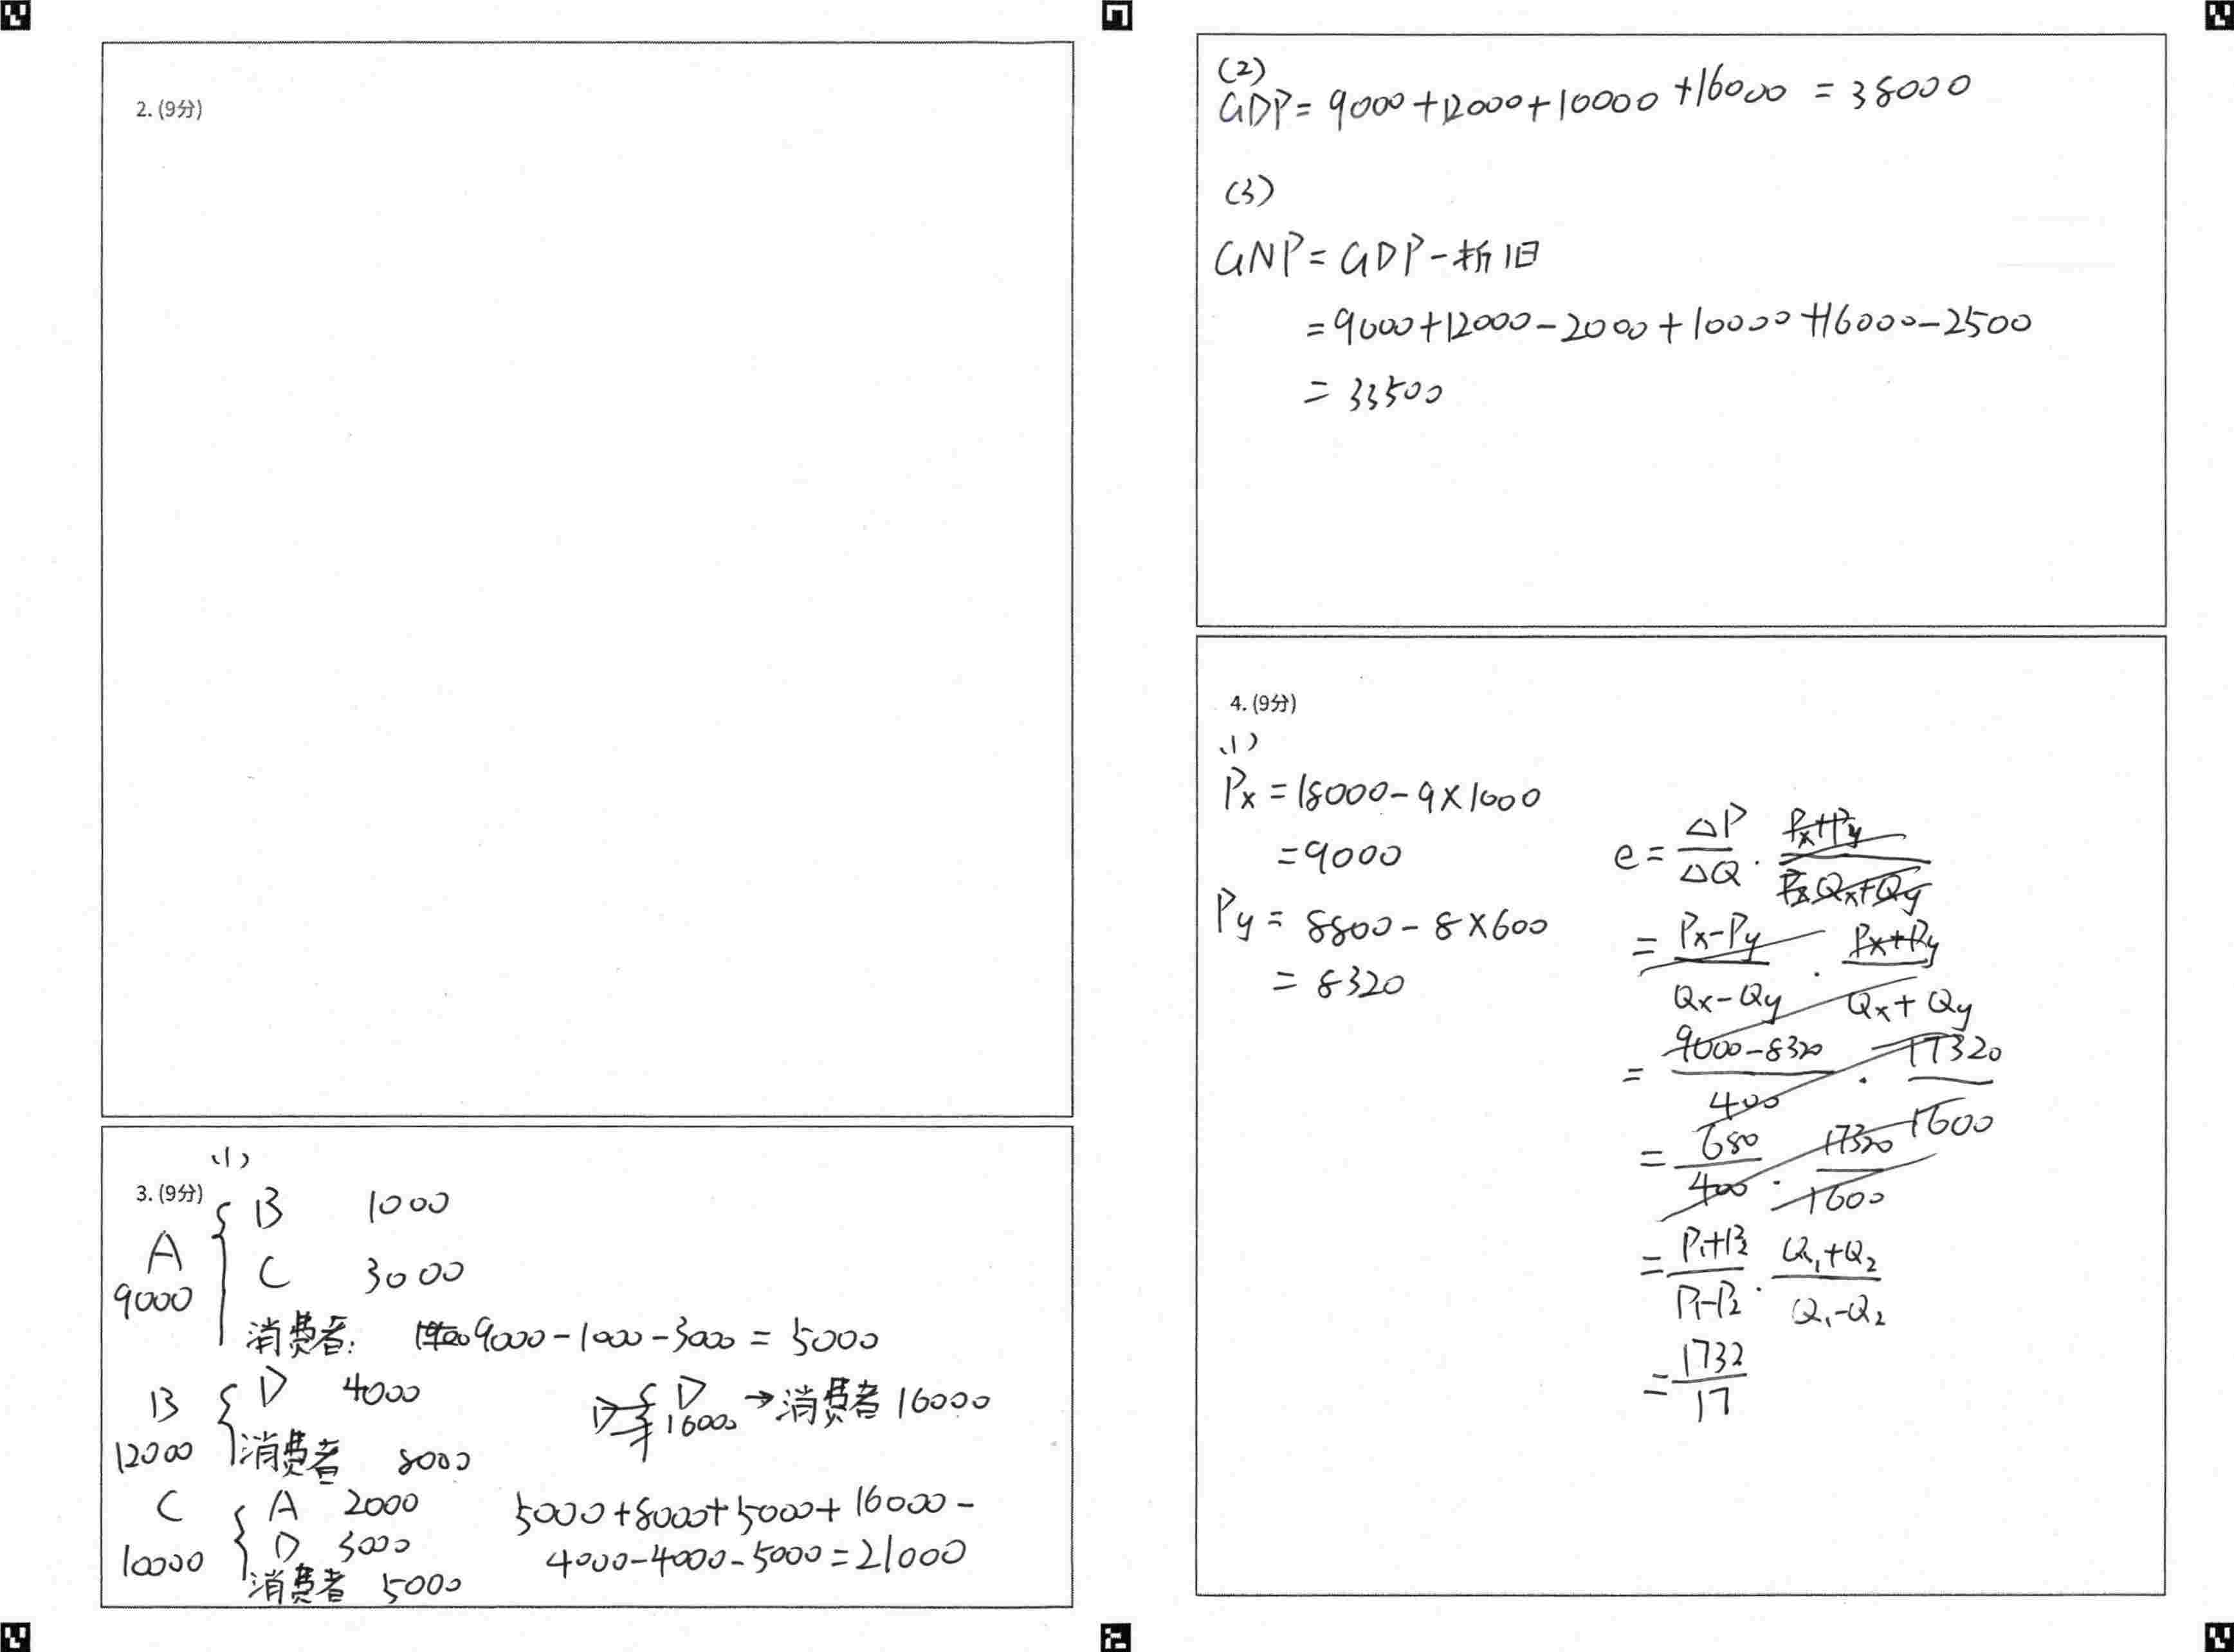 2. (9分)
(1)
3. (9分)
A
9000
B 1000
C 3000
消费者: 9000-1000-3000 = 5000
B
12000
D 4000
消费者 8000
D
16000 → 消费者 16000
C
10000
A 2000
D 3000
消费者 5000
5000+8000+5000+16000-
4000-4000-5000=21000
(2)
GDP = 9000+12000+10000+16000 = 38000
(3)
GNP = GDP-折旧
= 9000+12000-2000+10000+16000-2500
= 33500
4. (9分)
(1)
Px = 18000-9×1000
= 9000
Py = 8800-8×600
= 8320
e = ΔP/ΔQ · Px+Py/Qx+Qy
= Px-Py/Qx-Qy · Px+Py/Qx+Qy
= 9000-8320/400 · 17320/1600
= 680/400 · 17320/1600
= P1+P2/P1-P2 · Q1+Q2/Q1-Q2
= 1732/17